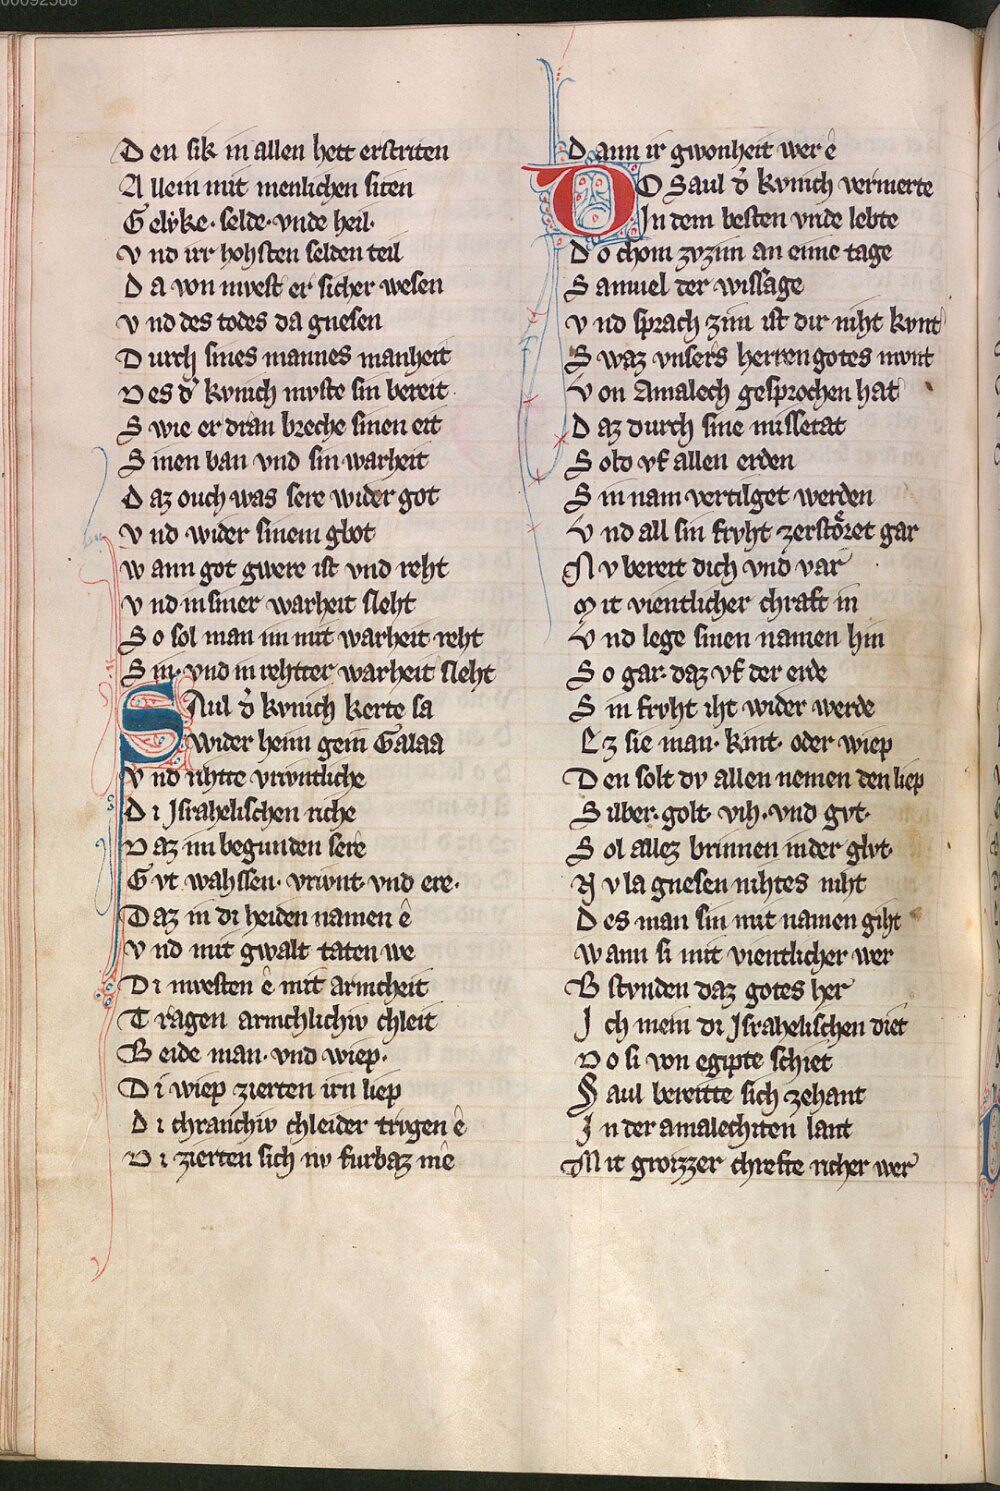 00092588
Den sik in allen hett erstriten
Allein mit menlichen siten
Gelyke· selde· vnde heil·
Vnd irr hohsten selden teil
Da von mvest er sicher wesen
Vnd des todes da gnesen
Durch sines mannes manheit
Des d̾ kvnich mvste sin bereit
Swie er dran breche sinen eit
Sinen ban vnd sin warheit
Daz ouch was sere wider got
Vnd wider sinem gbot
Wann got gwere ist vnd reht
Vnd in siner warheit sleht
So sol man im mit warheit reht
Sin· vnd in rehtter warheit sleht
SAul d̾ kvnich kerte sa
Wider heim gein Galaa
Vnd rihtte vrivntliche
Di Jsrahelischen riche
Daz im begunden sere
Gvt wahssen· vrivnt· vnd ere·
Daz in di heiden namen ê
Vnd mit gwalt taten we
Di mvesten ê mit armcheit
Tragen armchlichiv chleit
Beide man· vnd wiep·
Di wiep zierten irn liep
Di chranchiv chleider trvgen ê
Di zierten sich nv furbaz mê
Dann ir gwonheit wer ê
DO Saul d̾ kvnich vernierte
In dem besten vnde lebte
Do chom zvzim an eime tage
Samuel der wissage
Vnd sprach zim ist dir niht kvnt
Swaz vnsers herren gotes mvnt
Von Amalech gesprochen hat
Daz durch sine missetat
Sold vf allen erden
Sin nam vertilget werden
Vnd all sin frvht zerstöret gar
Nv bereit dich vnd var
Mit vientlicher chraft in
Vnd lege sinen namen hin
So gar· daz vf der erde
Sin frvht iht wider werde
Ez sie man· kint· oder wiep
Den solt dv allen nemen den liep
Silber· golt· vih· vnd gvt·
Sol allez brinnen in der glvt·
Nv la gnesen nihtes niht
Des man sin mit namen giht
Wann si mit vientlicher wer
Bstvnden daz gotes her
Ich mein di Jsrahelischen diet
Do si von egipte schiet
Saul bereitte sich zehant
In der amalechiten lant
Mit groizzer chrefte richer wer